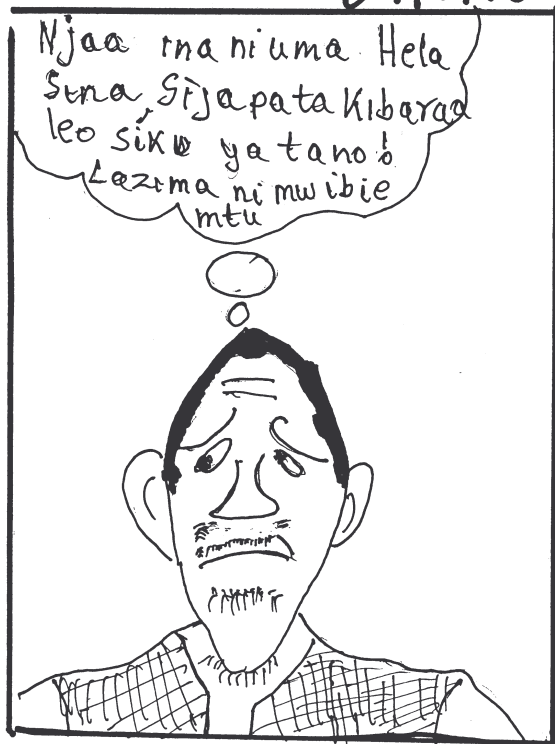 Njaa inaniuma Hela
Sina, Sijapata Kibaraa
leo siku ya tano!
Lazima nimwibie
mtu